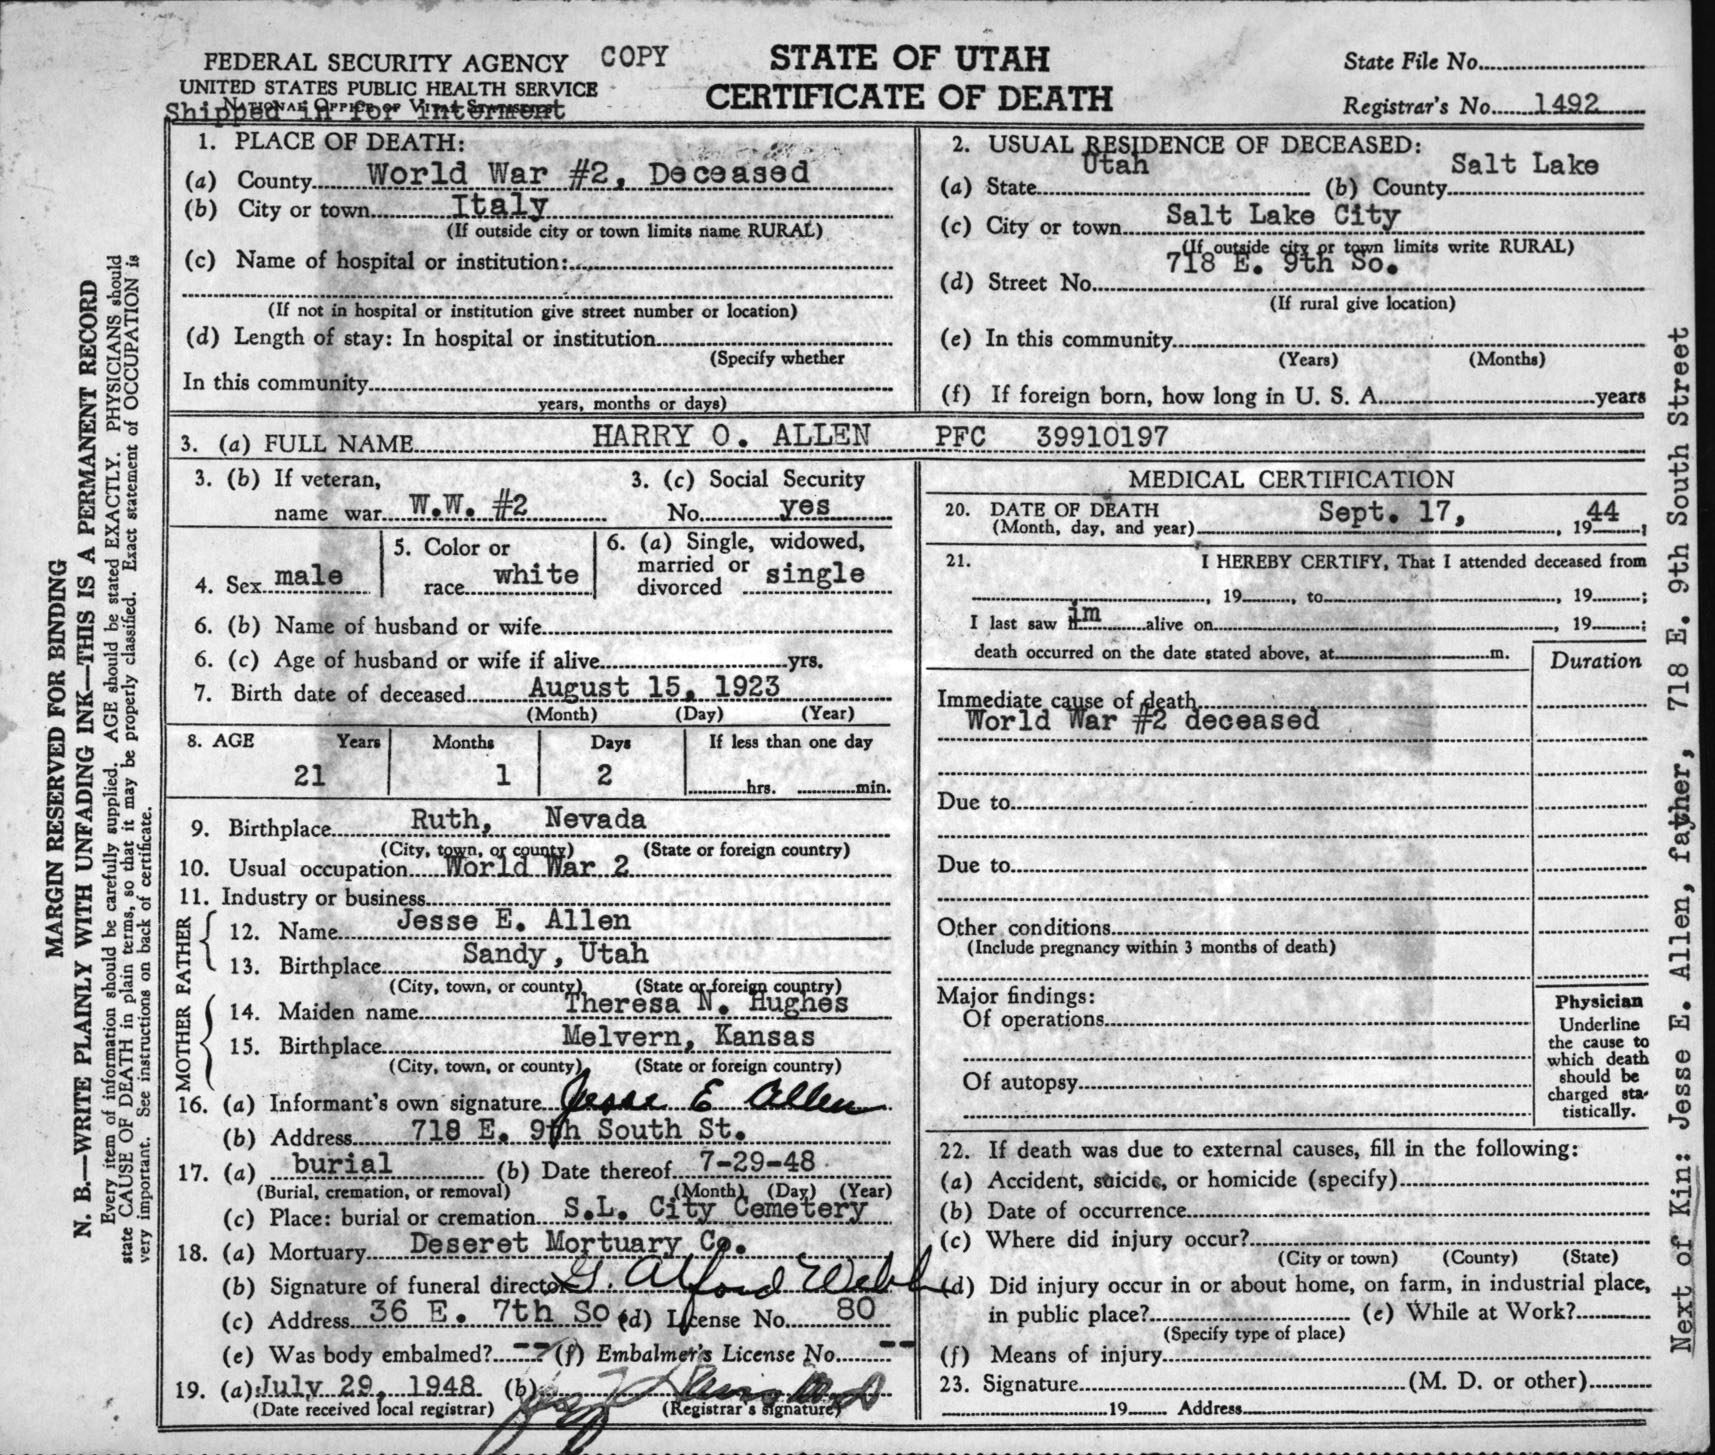 FEDERAL SECURITY AGENCY COPY
UNITED STATES PUBLIC HEALTH SERVICE
NATIONAL OFFICE OF VITAL STATISTICS
Shipped in for Interment
STATE OF UTAH
CERTIFICATE OF DEATH
State File No.
Registrar's No. 1492
1. PLACE OF DEATH:
(a) County World War #2, Deceased
(b) City or town Italy
(If outside city or town limits name RURAL)
(c) Name of hospital or institution:
(If not in hospital or institution give street number or location)
(d) Length of stay: In hospital or institution
(Specify whether
In this community
years, months or days)
2. USUAL RESIDENCE OF DECEASED:
(a) State Utah (b) County Salt Lake
(c) City or town Salt Lake City
(If outside city or town limits write RURAL)
(d) Street No. 718 E. 9th So.
(If rural give location)
(e) In this community
(Years) (Months)
(f) If foreign born, how long in U. S. A. years
3. (a) FULL NAME HARRY O. ALLEN PFC 39910197
3. (b) If veteran,
name war W.W. #2
3. (c) Social Security
No. yes
4. Sex male
5. Color or
race white
6. (a) Single, widowed,
married or
divorced single
6. (b) Name of husband or wife
6. (c) Age of husband or wife if alive yrs.
7. Birth date of deceased August 15, 1923
(Month) (Day) (Year)
8. AGE Years Months Days If less than one day
21 1 2 hrs. min.
9. Birthplace Ruth, Nevada
(City, town, or county) (State or foreign country)
10. Usual occupation World War 2
11. Industry or business
FATHER
12. Name Jesse E. Allen
13. Birthplace Sandy, Utah
(City, town, or county) (State or foreign country)
MOTHER
14. Maiden name Theresa N. Hughes
15. Birthplace Melvern, Kansas
(City, town, or county) (State or foreign country)
16. (a) Informant's own signature Jesse E Allen
(b) Address 718 E. 9th South St.
17. (a) burial (b) Date thereof 7-29-48
(Burial, cremation, or removal) (Month) (Day) (Year)
(c) Place: burial or cremation S.L. City Cemetery
18. (a) Mortuary Deseret Mortuary Co.
(b) Signature of funeral director G. Alford Webb
(c) Address 36 E. 7th So (d) License No. 80
(e) Was body embalmed? -- ? (f) Embalmer's License No. --
19. (a) July 29, 1948 (b)
(Date received local registrar) (Registrar's signature)
MEDICAL CERTIFICATION
20. DATE OF DEATH
(Month, day, and year) Sept. 17, , 19 44;
21. I HEREBY CERTIFY, That I attended deceased from
, 19 , to , 19 ;
I last saw him alive on , 19 ;
death occurred on the date stated above, at m.
Duration
Immediate cause of death
World War #2 deceased
Due to
Due to
Other conditions
(Include pregnancy within 3 months of death)
Major findings:
Of operations
Of autopsy
Physician
Underline
the cause to
which death
should be
charged sta-
tistically.
22. If death was due to external causes, fill in the following:
(a) Accident, suicide, or homicide (specify)
(b) Date of occurrence
(c) Where did injury occur?
(City or town) (County) (State)
(d) Did injury occur in or about home, on farm, in industrial place,
in public place? (e) While at Work?
(Specify type of place)
(f) Means of injury
23. Signature (M. D. or other)
19 Address
MARGIN RESERVED FOR BINDING
N. B.—WRITE PLAINLY WITH UNFADING INK—THIS IS A PERMANENT RECORD
Every item of information should be carefully supplied. AGE should be stated EXACTLY. PHYSICIANS should
state CAUSE OF DEATH in plain terms, so that it may be properly classified. Exact statement of OCCUPATION is
very important. See instructions on back of certificate.
Next of Kin: Jesse E. Allen, father, 718 E. 9th South Street